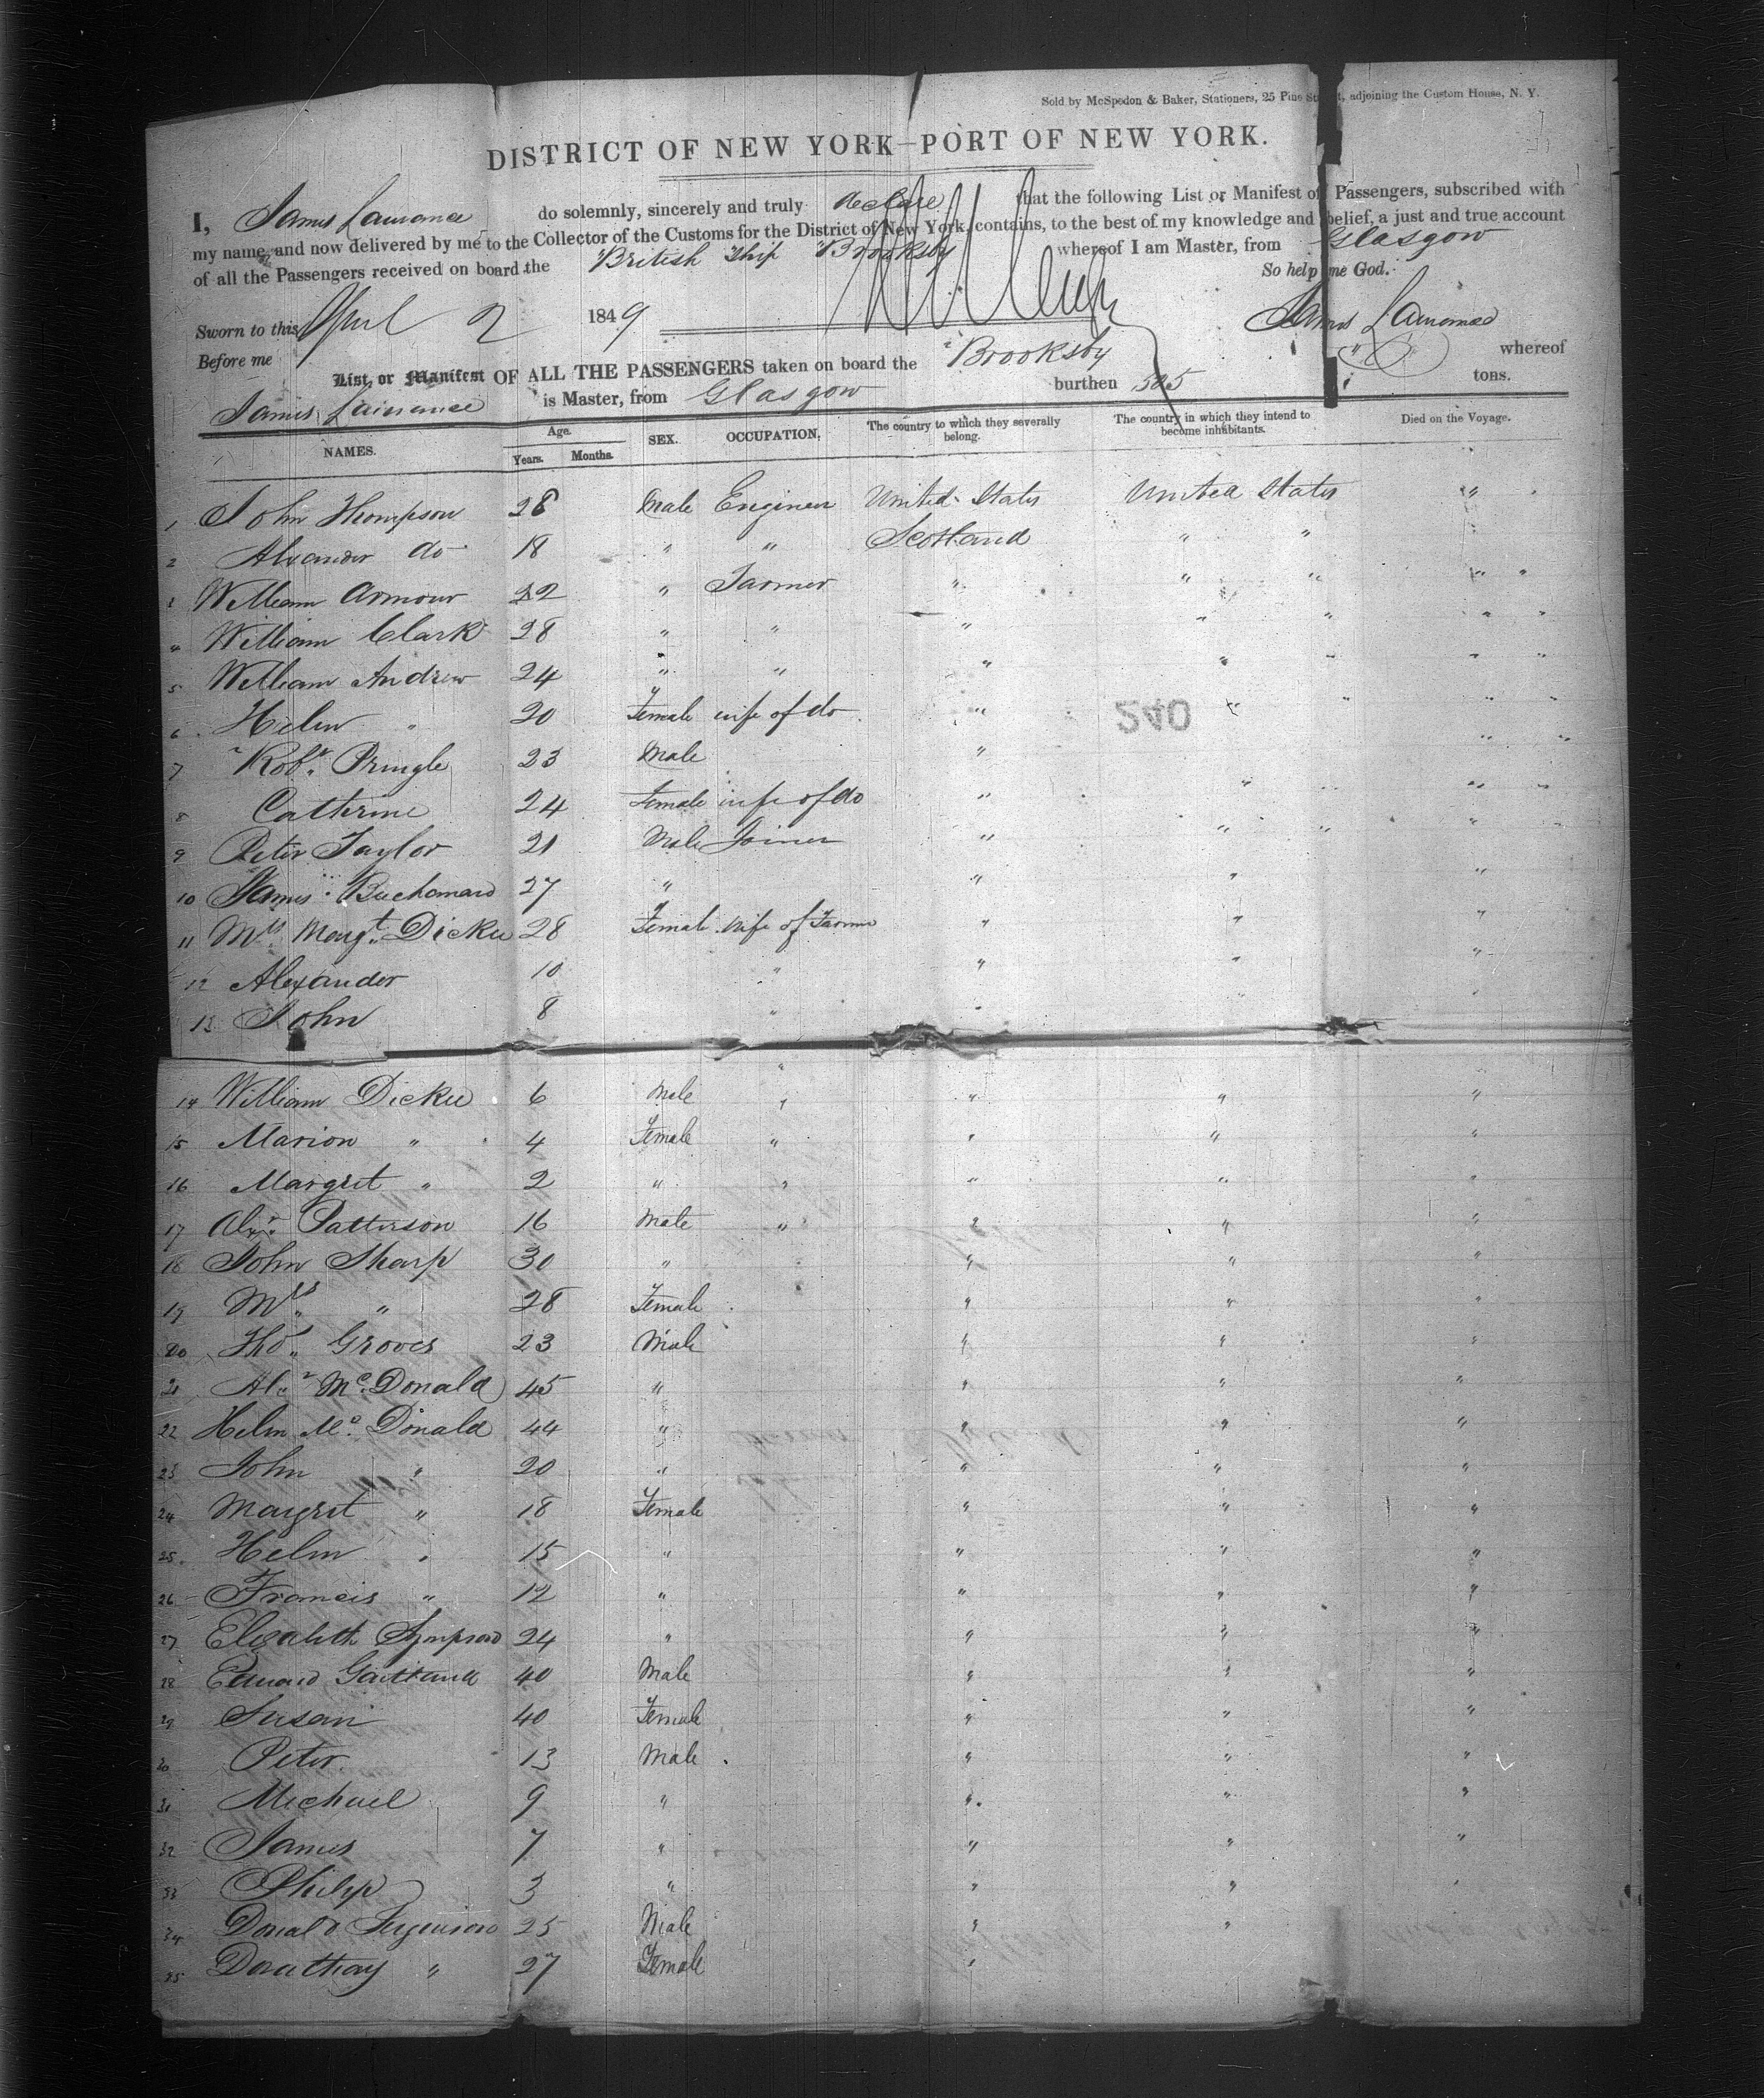 Sold by McSpedon & Baker, Stationers, 25 Pine Street, adjoining the Custom House, N. Y.
DISTRICT OF NEW YORK—PORT OF NEW YORK.
I, James Lawrance do solemnly, sincerely and truly declare that the following List or Manifest of Passengers, subscribed with
my name, and now delivered by me to the Collector of the Customs for the District of New York, contains, to the best of my knowledge and belief, a just and true account
of all the Passengers received on board the British Ship "Brooksby whereof I am Master, from Glasgow
So help me God.
Sworn to this April 2 1849
Before me
James Lawrance
List, or Manifest OF ALL THE PASSENGERS taken on board the "Brooksby whereof
James Lawrance is Master, from Glasgow burthen 505 tons.
NAMES. Age. Years. Months. SEX. OCCUPATION. The country to which they severally belong. The country in which they intend to become inhabitants. Died on the Voyage.
1 John Thompson 28 Male Engineer United States United States "
2 Alexander do 18 " " Scotland " "
3 William Armour 22 " Farmer " " " " "
4 William Clark 28 " " " " " " "
5 William Andrew 24 " " " " " " "
6 Helen " 20 Female wife of do " " " " "
240
7 Robt. Pringle 23 Male " " "
8 Catherine 24 Female wife of do " " " " "
9 Peter Taylor 21 Male Joiner " " " " "
10 James Buchanan 27 " " " "
11 Mrs Margt. Dickie 28 Female wife of Farmer " " "
12 Alexander 10 " " " "
13 John 8 " " " "
14 William Dickie 6 Male " " " "
15 Marion " 4 Female " " " "
16 Margret " 2 " " " " "
17 Alexr. Patterson 16 Male " " " "
18 John Sharp 30 " " " "
19 Mrs. " 28 Female " " "
20 Thos. Groves 23 Male " " "
21 Alr. McDonald 45 " " " "
22 Helen Mc. Donald 44 " " " "
23 John " 20 " " " "
24 Margret " 18 Female " " "
25 Helen " 15 " " " "
26 Francis " 12 " " " "
27 Elizabeth Sympson 24 " " " "
28 Edward 40 Male " " "
29 Susan 40 Female " " "
30 Peter 13 Male " " "
31 Michael 9 " " " "
32 James 7 " " " "
33 Philip 3 " " " "
34 Donald Ferguson 25 Male " "
35 " 27 Female "